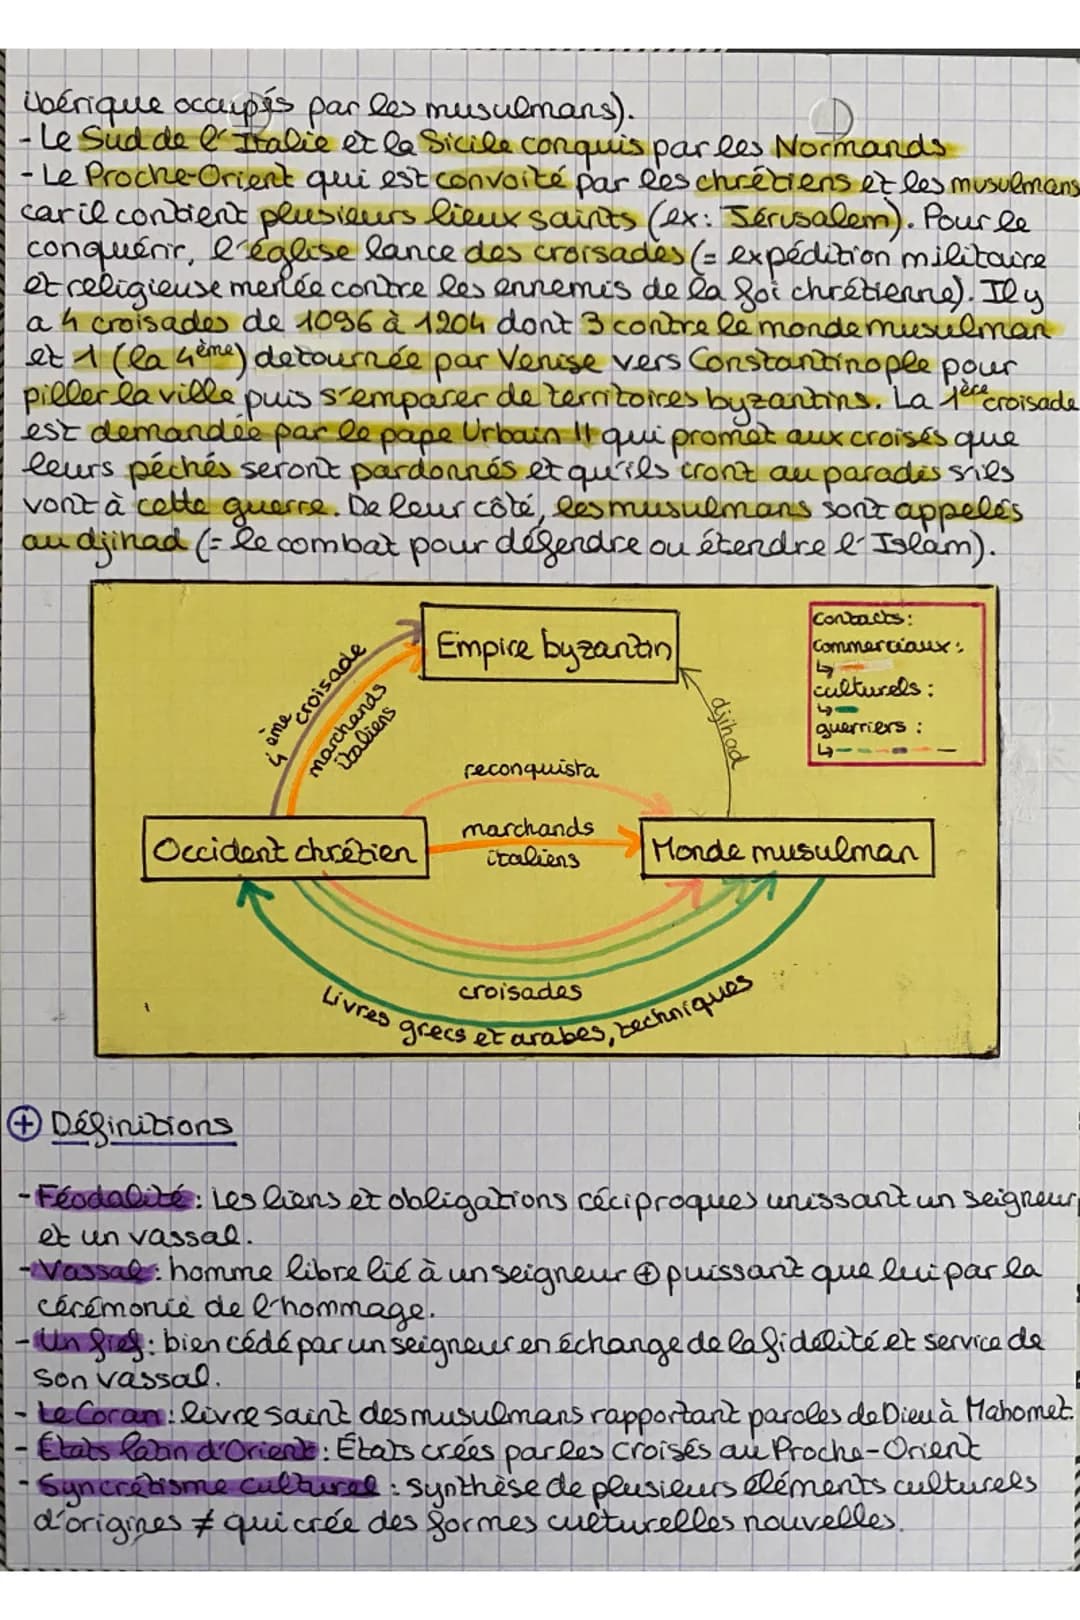 ibérique occupés par les musulmans).
- Le Sud de l'Italie et la Sicile conquis par les Normands
- Le Proche-Orient qui est convoité par les chrétiens et les musulmans
car il contient plusieurs lieux saints (ex: Jérusalem). Pour le
conquérir, l'église lance des croisades (= expédition militaire
et religieuse menée contre les ennemis de la foi chrétienne). Il y
a 4 croisades de 1096 à 1204 dont 3 contre le monde musulman
et 1 (la 4ème) detournée par Venise vers Constantinople pour
piller la ville puis s'emparer de territoires byzantins. La 1ère croisade
est demandée par le pape Urbain II qui promet aux croisés que
leurs péchés seront pardonnés et qu'ils iront au paradis s'ils
vont à cette guerre. De leur côté, les musulmans sont appelés
au djihad (= le combat pour défendre ou étendre l'Islam).
Empire byzantin
contacts:
commerciaux:
culturels:
guerriers:
4ème croisade
marchands
italiens
djihad
reconquista
marchands
italiens
Occident chrétien
Monde musulman
croisades
Livres grecs et arabes, techniques
⊕ Définitions
- Féodalité: Les liens et obligations réciproques unissant un seigneur
et un vassal.
- Vassal: homme libre lié à un seigneur ⊕ puissant que lui par la
cérémonie de l'hommage.
- Un fief: bien cédé par un seigneur en échange de la fidélité et service de
son vassal.
- Le Coran: livre saint des musulmans rapportant paroles de Dieu à Mahomet.
- États latin d'Orient: États crées par les croisés au Proche-Orient
- Syncrétisme culturel: synthèse de plusieurs éléments culturels
d'origines ≠ qui crée des formes culturelles nouvelles.